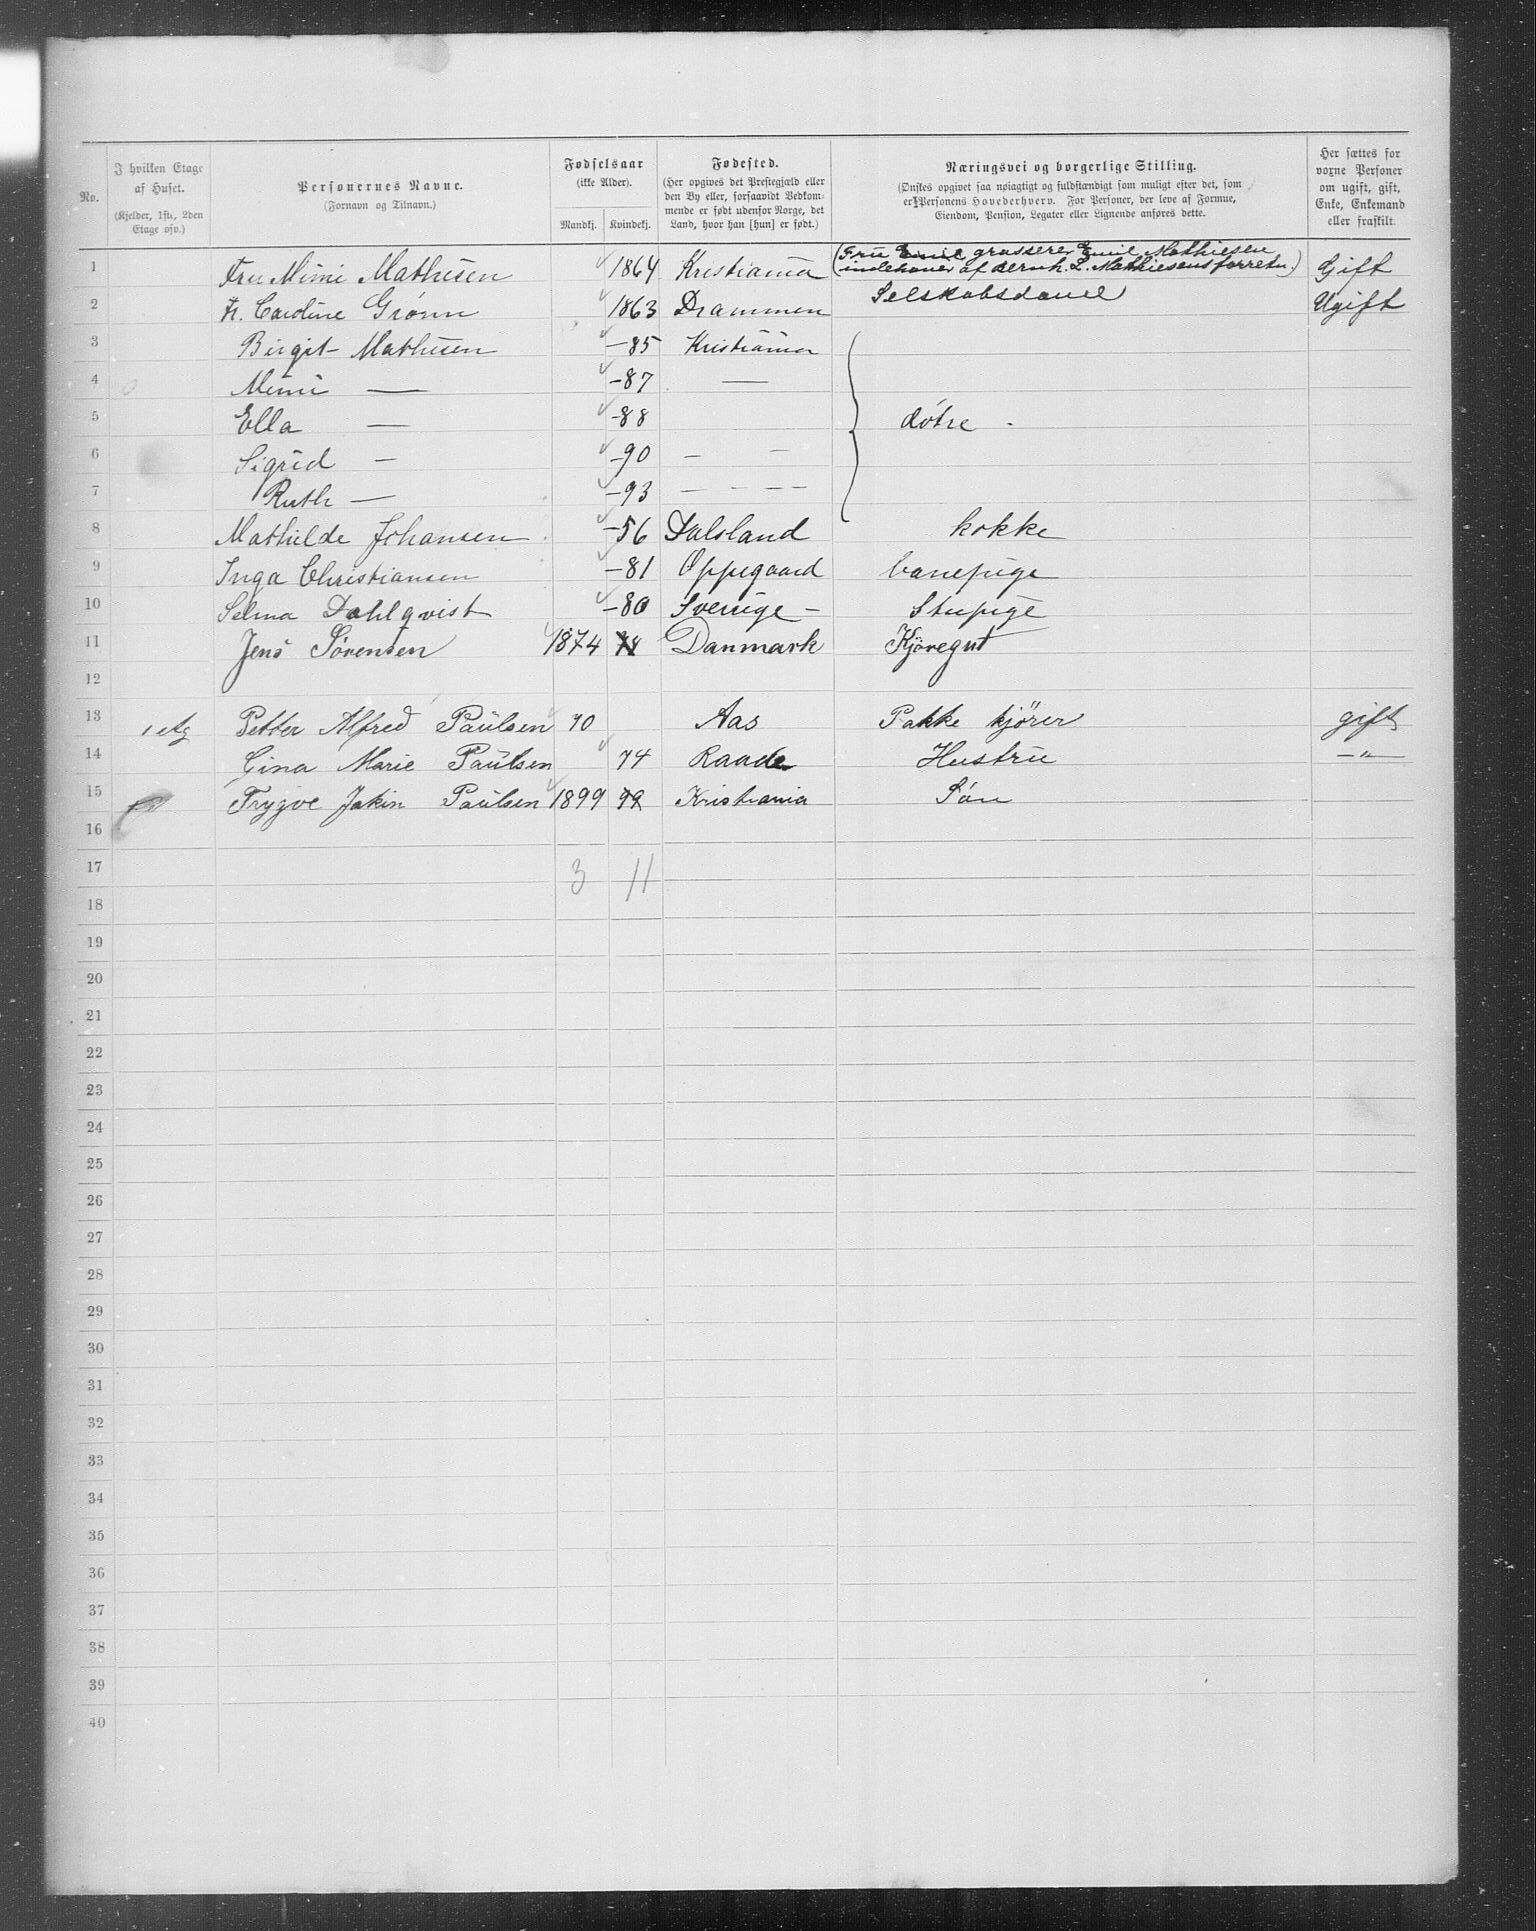 No.
I hvilken Etage
af Huset.
(Kjelder, 1ste, 2den
Etage osv.)
Personernes Navne.
(Fornavn og Tilnavn.)
Fødselsaar
(ikke Alder).
Mandkj. Kvindekj.
Fødested.
(Her opgives det Prestegjæld eller
den By eller, forsaavidt Vedkom-
mende er født udenfor Norge, det
Land, hvor han [hun] er født.)
Næringsvei og borgerlige Stilling.
(Ønskes opgivet saa nøiagtigt og fuldstændigt som muligt efter det, som
er Personens Hovederhverv. For Personer, der leve af Formue,
Eiendom, Pension, Legater eller Lignende anføres dette.
Her sættes for
voxne Personer
om ugift, gift,
Enke, Enkemand
eller fraskilt.
(Fru Emil grosserer Emil Mathiesen
1 Fru Mimi Mathiesen 1864 Kristiania indehaver af Bernh. L. Mathiesens forretn.) Gift
2 Fr. Caroline Grönn 1863 Drammen Selskabsdame Ugift
3 Birgit Mathiesen -85 Kristiania
4 Mimi — -87 —
5 Ella — -88 døtre
6 Sigrid — -90 — —
7 Ruth — -93 — — — —
8 Mathilde Johansen -56 Dalsland kokke
9 Inga Christiansen -81 Oppegaard barnepige
10 Selma Dahlqvist -80 Sverrige — Stupige
11 Jens Sørensen 1874 74 Danmark Kjöregut
12
13 1 etg Petter Alfred Paulsen 70 Aas Pakke kjörer gift
14 Gina Marie Paulsen 74 Raade Hustru — " —
15 Trygve Jakin Paulsen 1899 99 Kristiania Søn
16
17 3 11
18
19
20
21
22
23
24
25
26
27
28
29
30
31
32
33
34
35
36
37
38
39
40